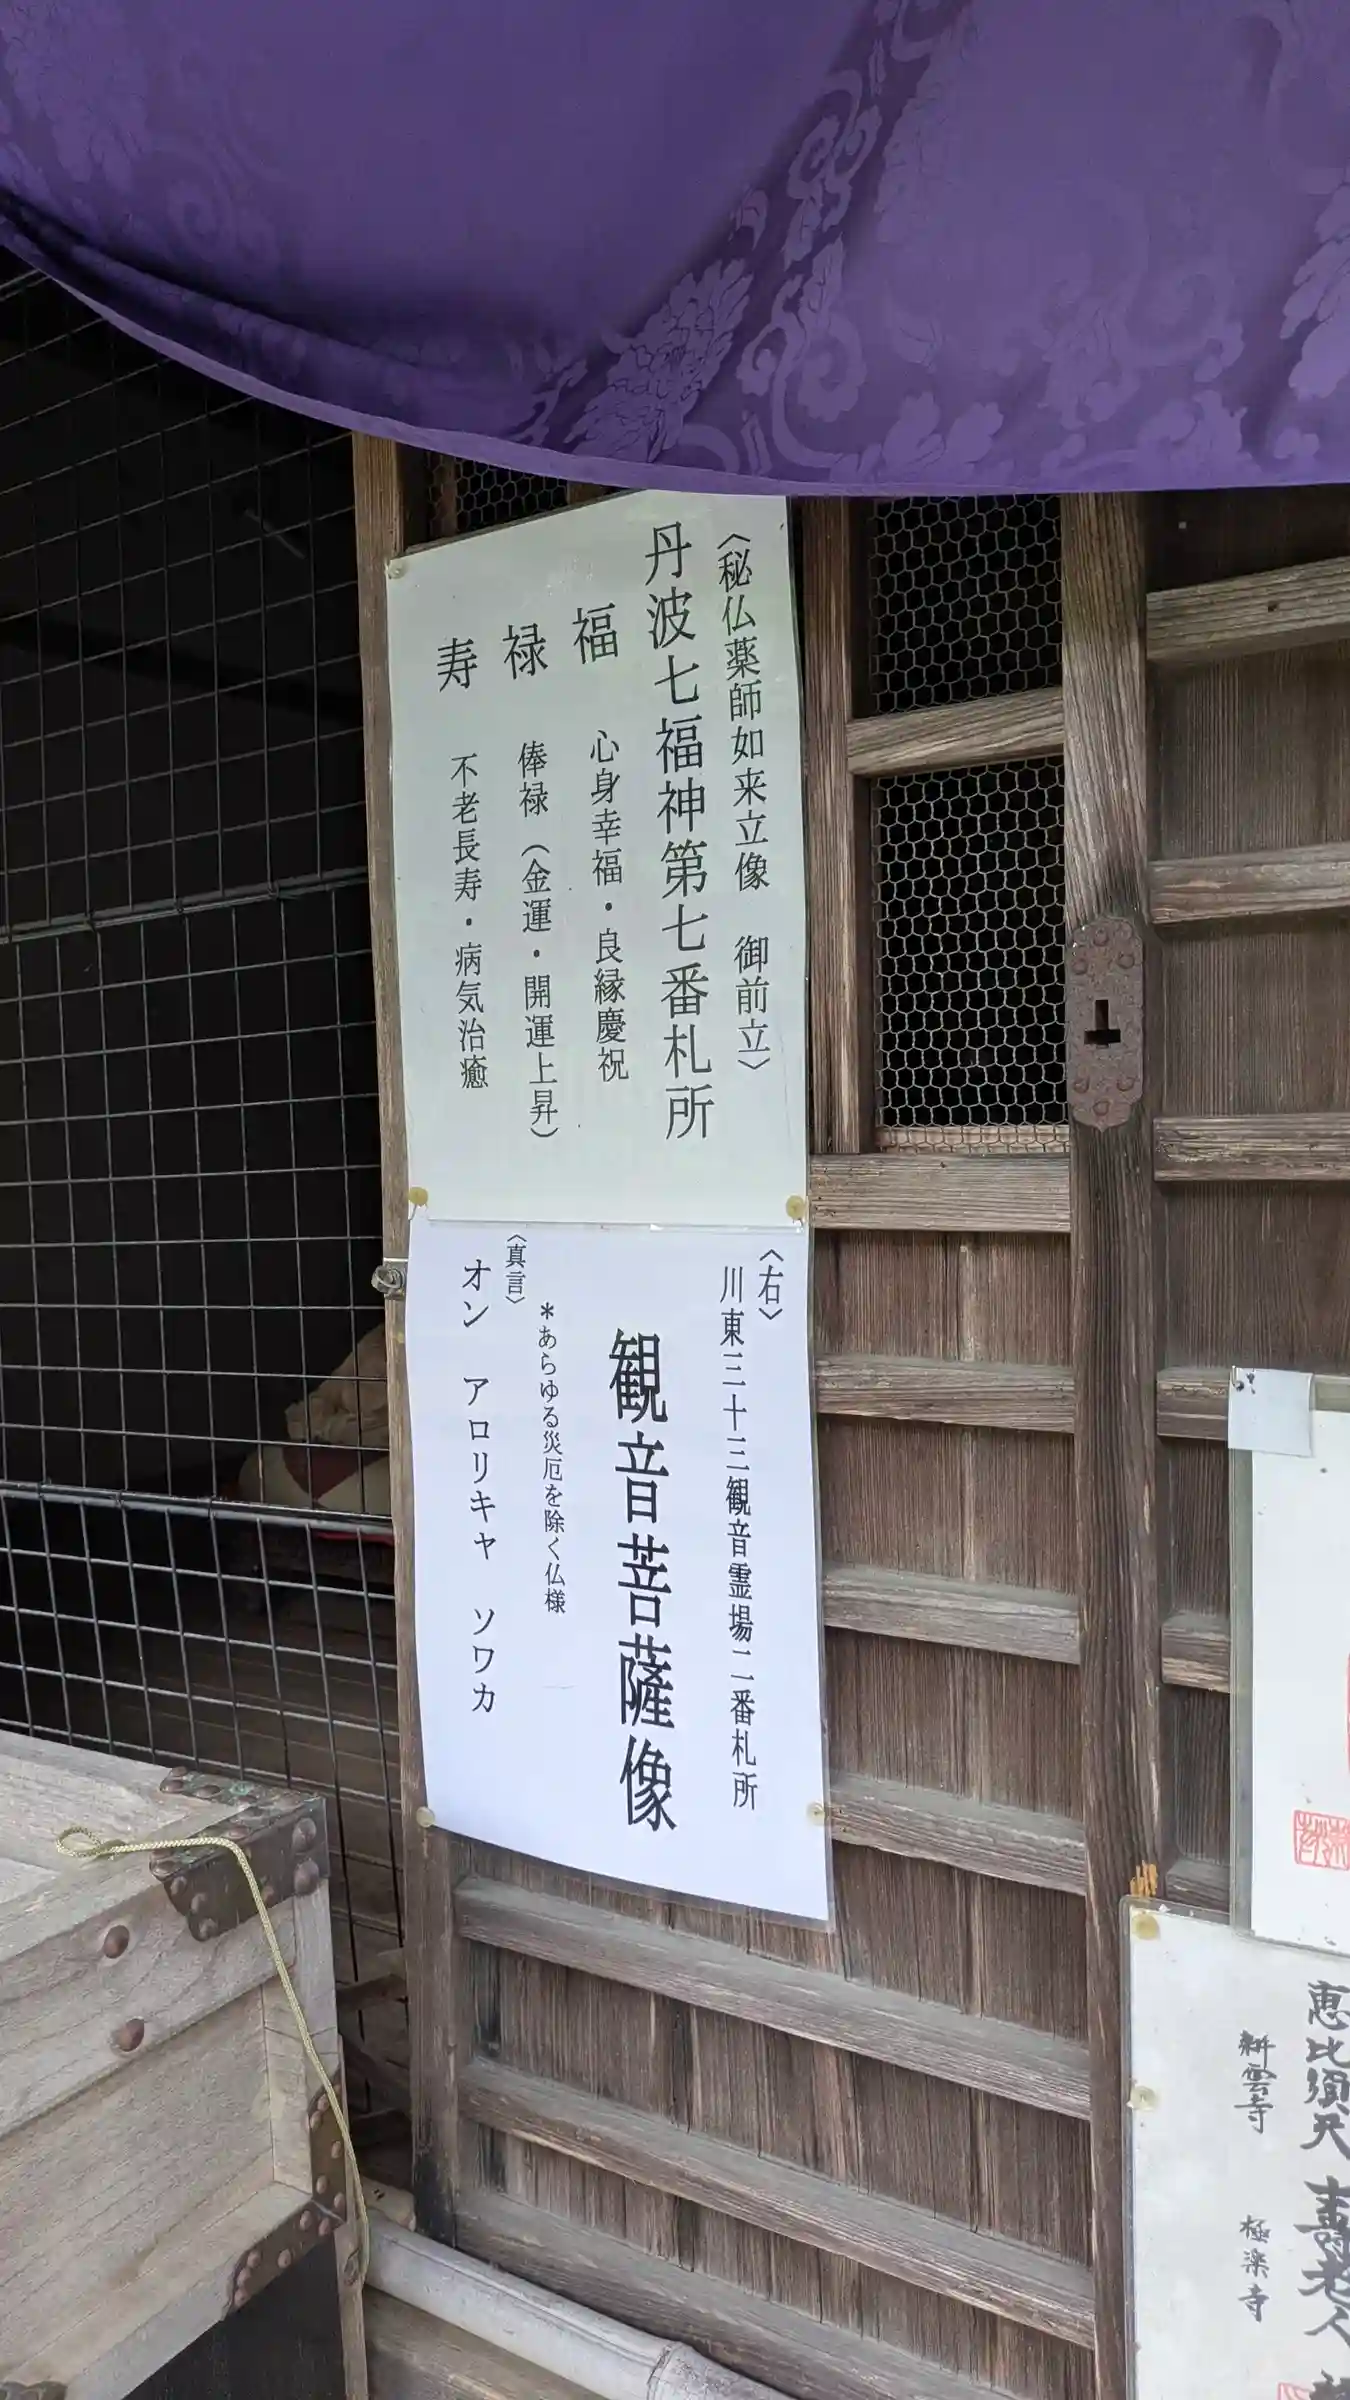 〈秘仏薬師如来立像 御前立〉
丹波七福神第七番札所
福 心身幸福・良縁慶祝
禄 俸禄（金運・開運上昇）
寿 不老長寿・病気治癒
〈右〉
川東三十三観音霊場二番札所
観音菩薩像
＊あらゆる災厄を除く仏様
〈真言〉
オン アロリキャ ソワカ
恵比須天 寿老人
耕雲寺 極楽寺